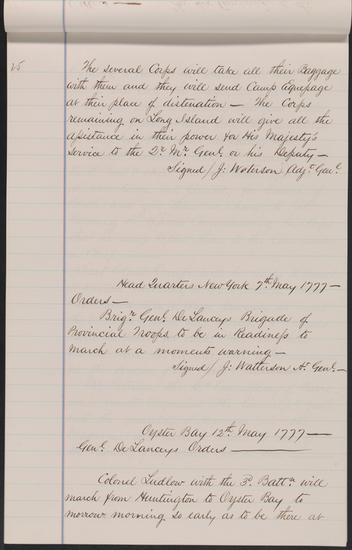 25
The several Corps will take all their Baggage
with them and they will send Camp Equepage
at their place of distenation — The Corps
remaining on Long Island will give all the
assistance in their power for His Majesty's
Service to the Qr. Mr. Genl. or his Deputy —
Signed / J: Waterson Adjt. Genl.
Head Quarters New York 7th. May 1777 —
Orders —
Brigr. Genl. De Lanceys Brigade of
Provincial Troops to be in Readiness to
march at a moments warning —
Signed / J: Watterson At. Genl. —
Oyster Bay 12th. May 1777 —
Genl. De Lanceys Orders —
Colonel Ludlow with the 3d. Battn. will
march from Huntington to Oyster Bay to
morrow morning so early as to be there at